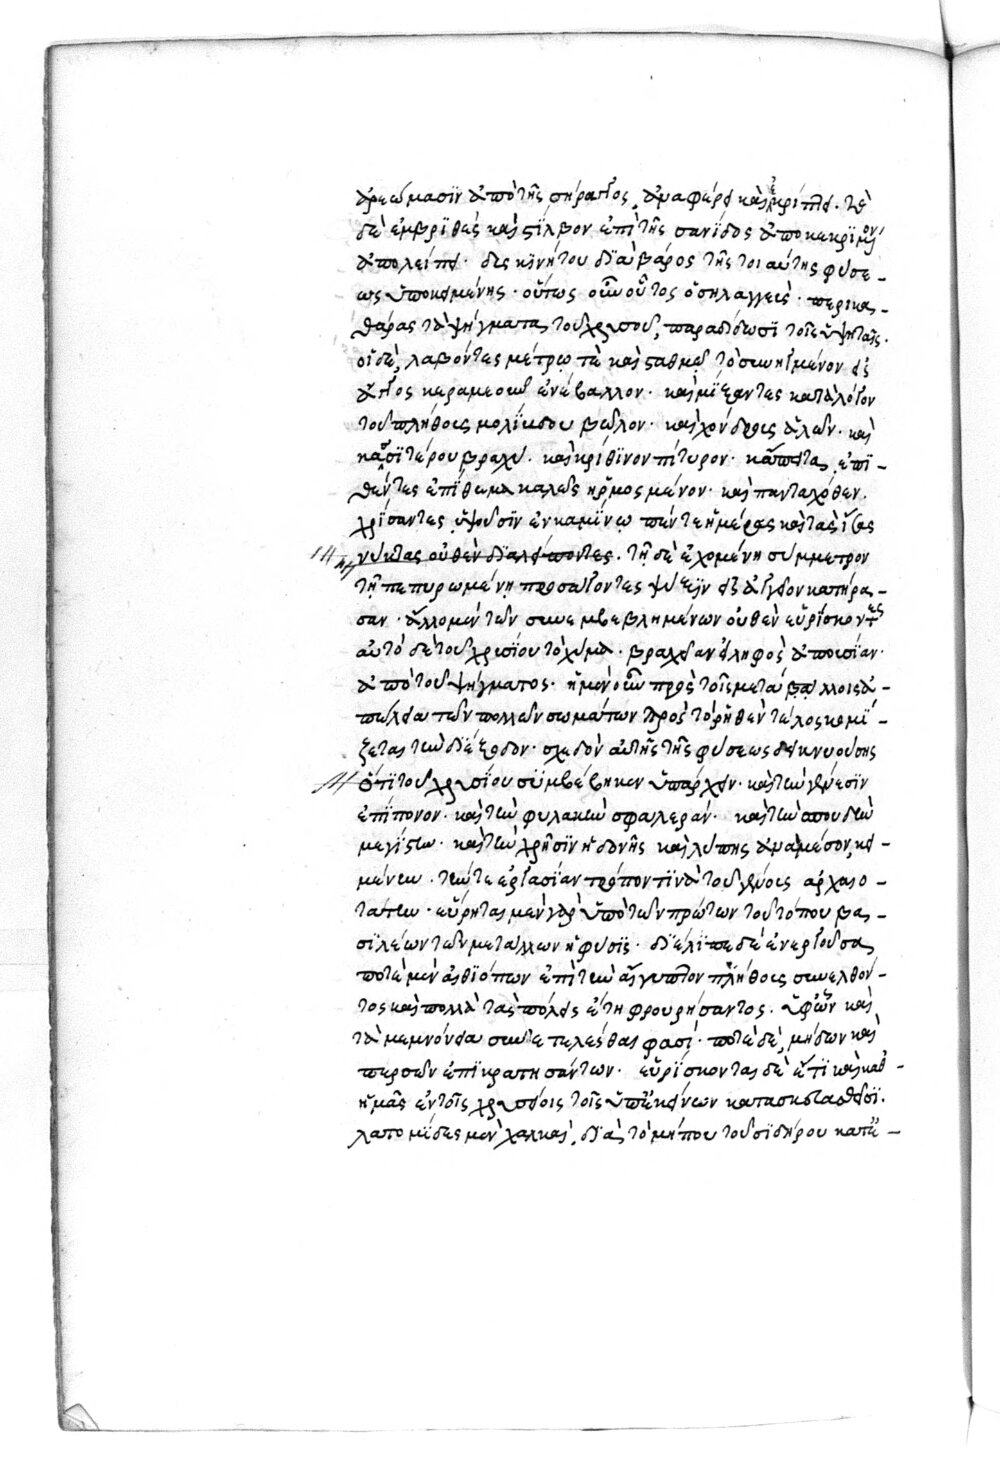 ἀραιώμασιν ἀπὸ τῆς σήραγγος, ἀναφέρει καὶ ἐκρίπτει. τὸ
δὲ ἐμβριθὲς καὶ στίλβον ἐπὶ τῆς σανίδος ἀποκεκριμένον
ἀπολείπει. δυσκινήτου διὰ βάρος τῆς τοιαύτης φύσε-
ως ὑποκειμένης. οὕτως οὖν οὗτος ὁ σηλαγγεὺς. περικα-
θάρας τὰ ψήγματα τοῦ χρυσοῦ, παραδίδωσι τοῖς ἑψηταῖς.
οἱ δὲ, λαβόντες μέτρῳ τε καὶ σταθμῷ τὸ συνηγμένον εἰς
ἄγγος κεραμεοῦν ἐνέβαλλον. καὶ μίξαντες κατὰ λόγον
τοῦ πλήθους μολίβδου βῶλον. καὶ χόνδρους ἁλῶν. καὶ
κασσιτέρου βραχὺ. καὶ κρίθινον πίτυρον. κἄπειτα ἐπι-
θέντες ἐπίθεμα καλῶς ἡρμοσμένον. καὶ πανταχόθεν
χρίσαντες, ἕψουσιν ἐν καμίνῳ πέντε ἡμέρας καὶ τὰς ἴσας
νύκτας οὐθὲν διαλείποντες. τῇ δὲ ἐχομένῃ σύμμετρον
τῇ πεπυρωμένῃ προσαγαγόντες ψύξιν εἰς ἀγγεῖον κατήρα-
σαν. ἄλλο μὲν τῶν συνεμβεβλημένων οὐθὲν εὑρίσκοντες
αὐτὸ δὲ τοῦ χρυσίου τὸ χύμα. βραχεῖαν εἰληφὸς ἀπουσίαν
ἀπὸ τοῦ ψήγματος. ἡ μὲν οὖν πρὸς τοῖς μετάλλοις ἀ-
πώλεια τῶν πολλῶν σωμάτων πρὸς τὸ ῥηθὲν τέλος κομί-
ζεται τὴν διέξοδον. σχεδὸν αὐτῆς τῆς φύσεως δεικνυούσης
ὅτι τοῦ χρυσίου συμβέβηκεν ὑπάρχειν. καὶ τὴν γένεσιν
ἐπίπονον. καὶ τὴν φυλακὴν σφαλεράν. καὶ τὴν σπουδὴν
μεγίστην. καὶ τὴν χρῆσιν ἡδονῆς καὶ λύπης ἀναμέσον κει-
μένην. τήν τε ἐργασίαν τρόπον τινὰ τοῦ γένους ἀρχαιο-
τάτην. εὕρηται μὲν γὰρ ὑπὸ τῶν πρώτων τοῦ τόπου βα-
σιλέων τῶν μετάλλων ἡ φύσις. διέλιπε δὲ ἐνεργοῦσα
ποτὲ μὲν αἰθιόπων ἐπὶ τὴν αἴγυπτον πλήθους συνελθόν-
τος καὶ πολλὰ τὰς πόλεις ἔτη φρουρήσαντος. ὑφ' ὧν καὶ
τὰ μεμνόνεια συντετελέσθαι φασί. ποτὲ δὲ, μήδων καὶ
περσῶν ἐπικρατησάντων. εὑρίσκονται δὲ ἔτι καὶ καθ'
ἡμᾶς ἐν τοῖς χρυσείοις τοῖς ὑπ' ἐκείνων κατασκευασθεῖσι.
λατομίδες μὲν χαλκαῖ, διὰ τὸ μήπω τοῦ σιδήρου κατ'